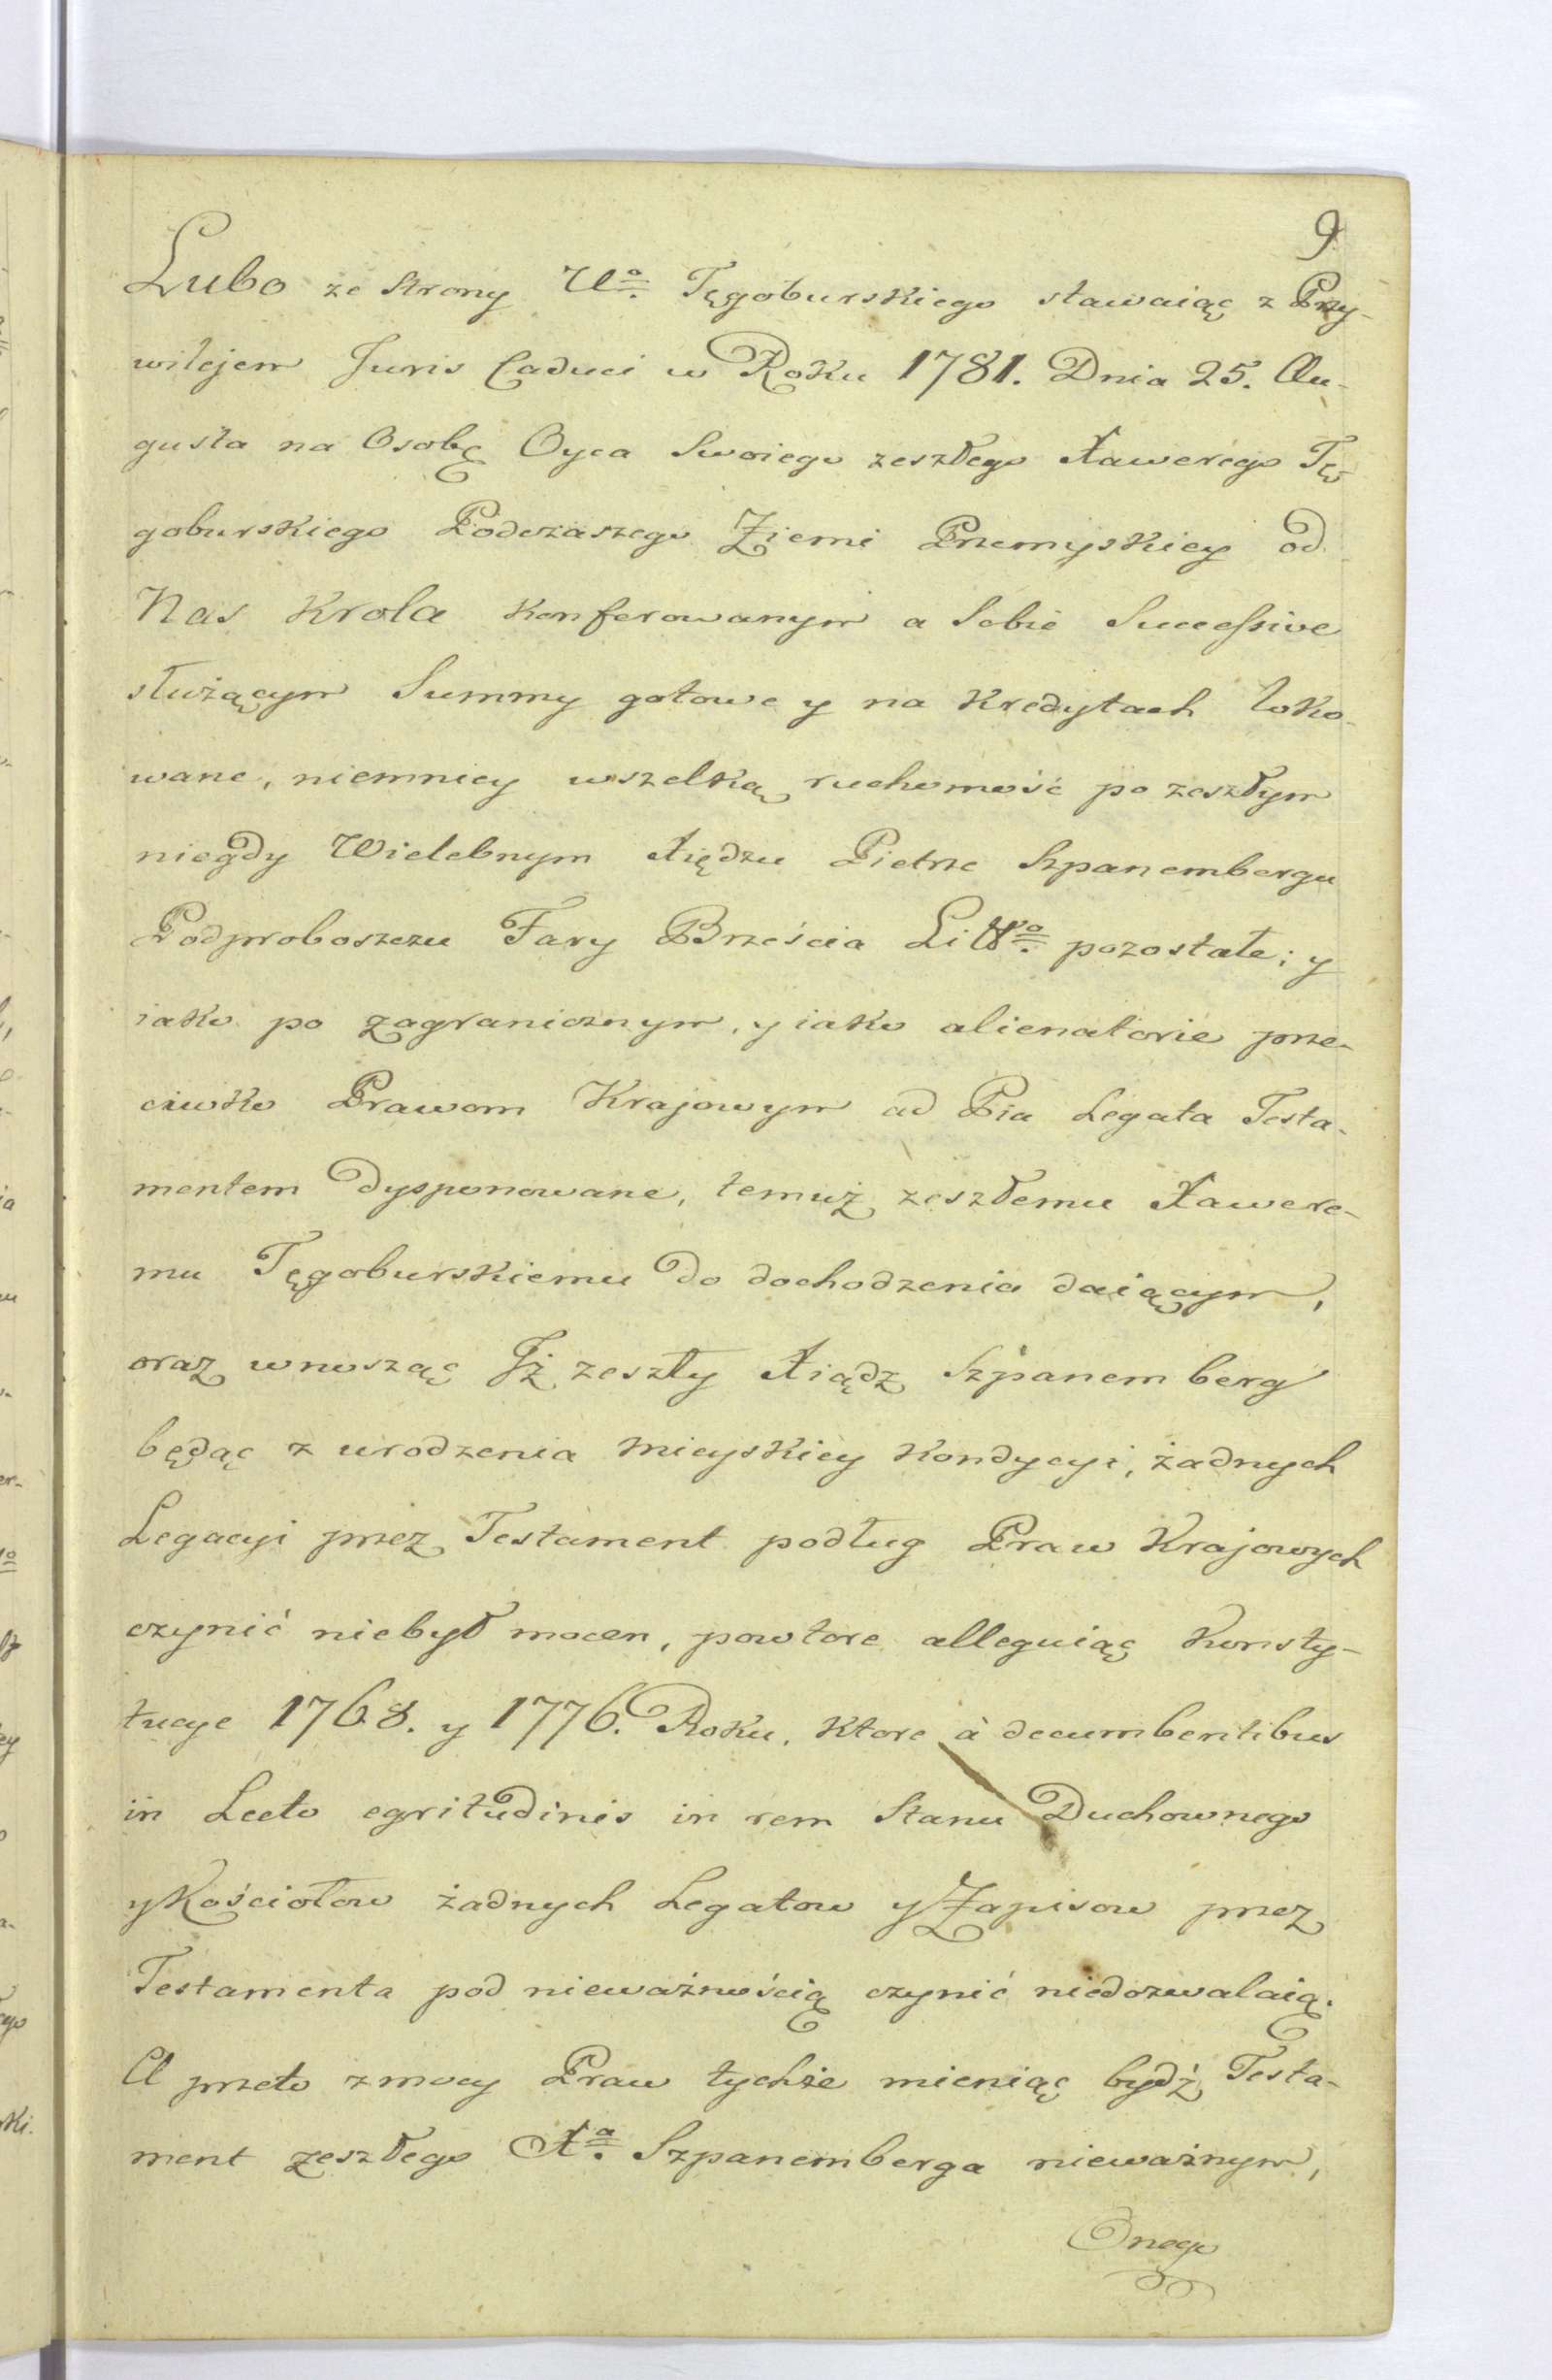 9
Lubo ze Strony Uo Tęgoburskiego stawaiąc z Przy-
wilejem Juris Caduci w Roku 1781. Dnia 25. Au-
gusta na Osobę Oyca Swoiego zeszłego Xawerego Tę-
goburskiego Podczaszego Ziemi Przemyskiey od
Nas Krola konferowanym a Sobie Successive
służącym Summy gotowe y na Kredytach loko-
wane, niemniey wszelką ruchomość po zeszłym
niegdy Wielebnym Xiędzu Pietrze Szpanembergu
Podproboszczu Fary Brześcia Littwo pozostałe; y
iako po zagranicznym, y iako alienatorie prze-
ciwko Prawom Krajowym ad Pia Legata Testa-
mentem dysponowane, temuż zeszłemu Xawere-
mu Tęgoburskiemu do dochodzenia daiącym,
oraz wnosząc Jż zeszły Xiądz Szpanemberg
będąc z urodzenia mieyskiey Kondycyi, żadnych
Legacyi przez Testament podług Praw Krajowych
czynić niebył mocen, powtore alleguiąc Konsty-
tucye 1768. y 1776. Roku, ktore à decumbentibus
in Lecto egritudinis in rem Stanu Duchownego
y Kościołow żadnych Legatow y Zapisow przez
Testamenta pod nieważnością czynić niedozwalaią.
A przeto z mocy Praw tychże mieniąc bydź Testa-
ment zeszłego Xa Szpanemberga nieważnym,
Onego